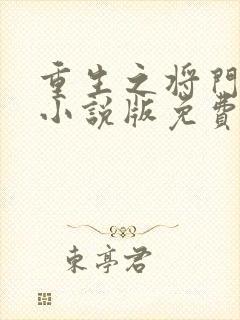 重生之将門
小說版免費
東亭君